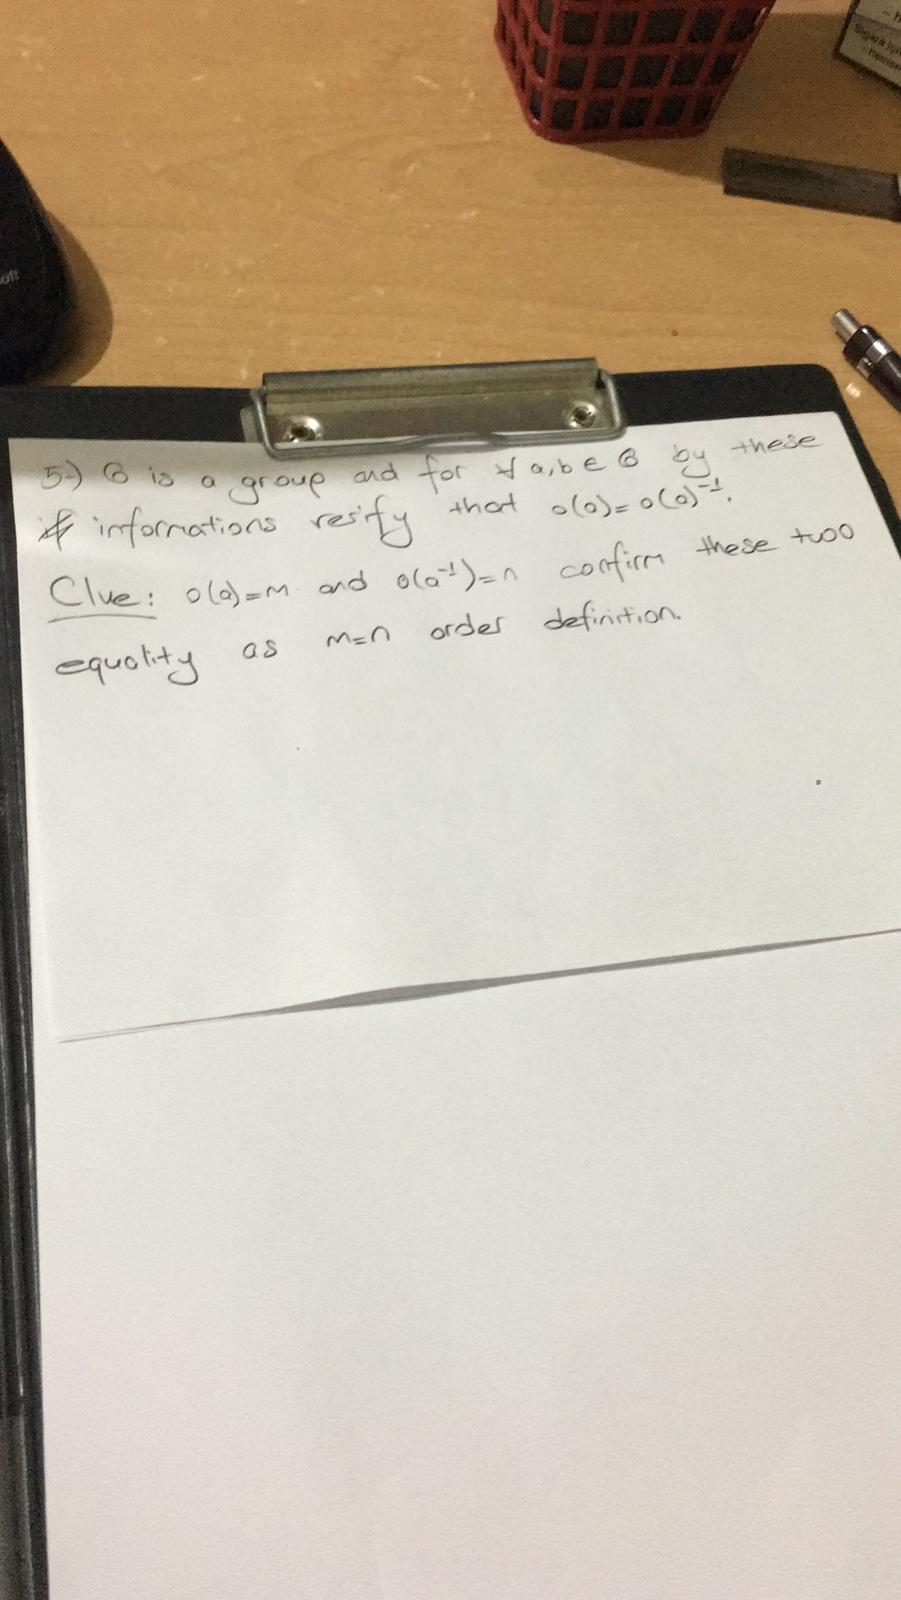 5-) G is a group and for ∀ a,b ∈ G by these
informations verify that o(a)=o(a)⁻¹.
Clue: o(a)=m and o(a⁻¹)=n confirm these two
equality as m=n order definition.